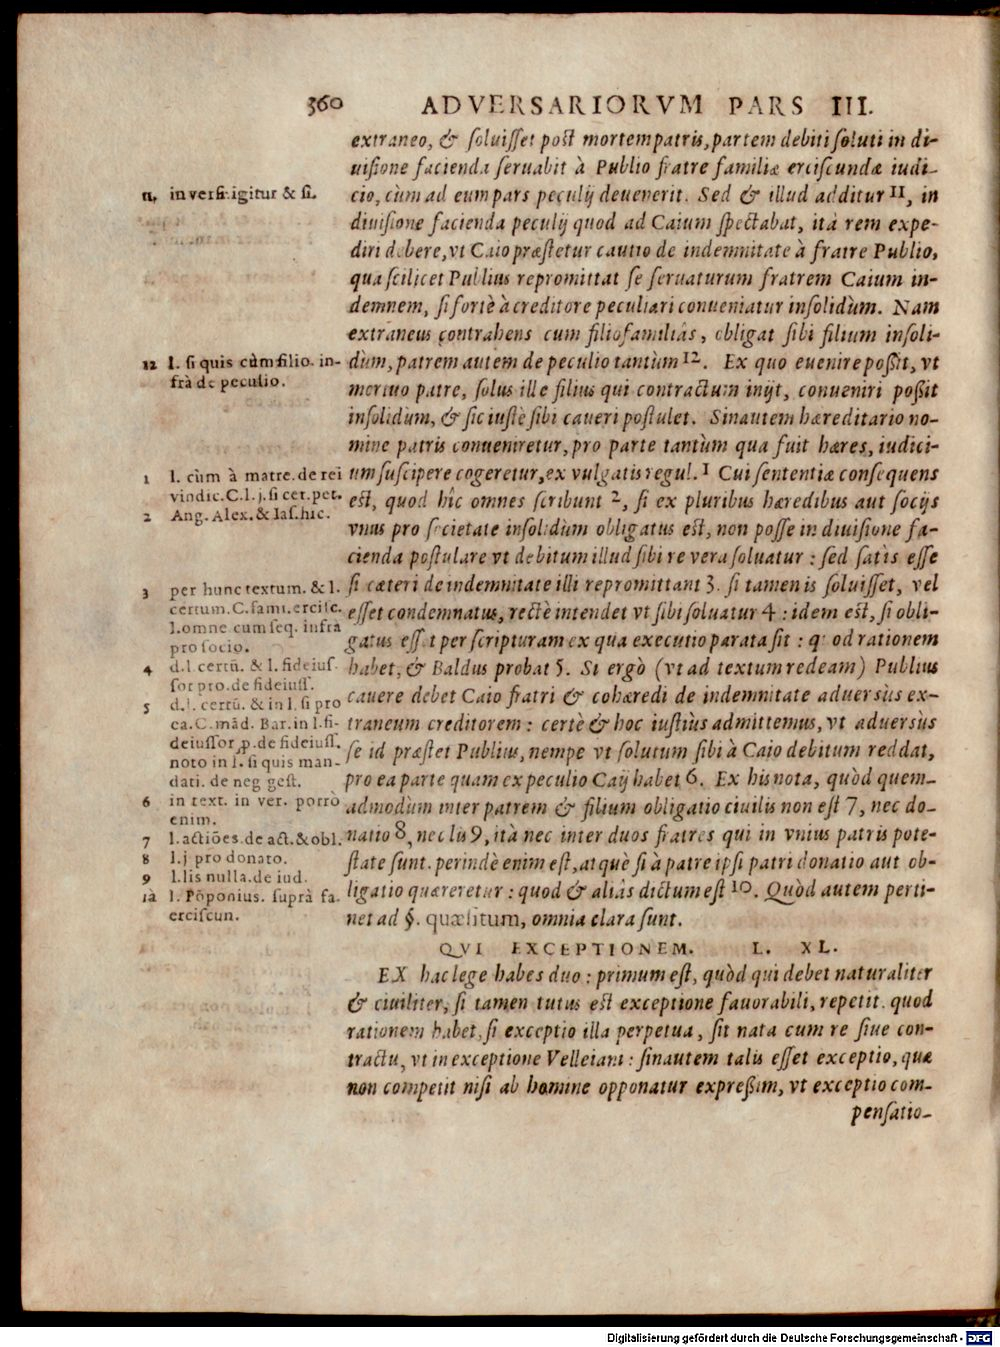 360 ADVERSARIORVM PARS III.
extraneo, & soluisset post mortem patris, partem debiti soluti in di-
uisione facienda seruabit à Publio fratre familiæ erciscundæ iudi-
cio, cùm ad eum pars peculij deuenerit. Sed & illud additur 11, in
diuisione facienda peculij quod ad Caium spectabat, ità rem expe-
diri debere, vt Caio præstetur cautio de indemnitate à fratre Publio,
qua scilicet Publius repromittat se seruaturum fratrem Caium in-
demnem, si fortè à creditore peculiari conueniatur insolidùm. Nam
extraneus contrahens cum filiofamiliâs, obligat sibi filium insoli-
dùm, patrem autem de peculio tantùm 12. Ex quo euenire possit, vt
mortuo patre, solus ille filius qui contractum inijt, conueniri possit
insolidùm, & sic iustè sibi caueri postulet. Sinautem hæreditario no-
mine patris conueniretur, pro parte tantùm qua fuit hæres, iudici-
um suscipere cogeretur, ex vulgatis regul. 1 Cui sententiæ consequens
est, quod hîc omnes scribunt 2, si ex pluribus hæredibus aut socijs
vnus pro societate insolidùm obligatus est, non posse in diuisione fa-
cienda postulare vt debitum illud sibi re vera soluatur : sed satis esse
si cæteri de indemnitate illi repromittant 3. si tamen is soluisset, vel
esset condemnatus, rectè intendet vt sibi soluatur 4 : idem est, si obli-
gatus esset per scripturam ex qua executio parata sit : quod rationem
habet, & Baldus probat 5. Si ergò (vt ad textum redeam) Publius
cauere debet Caio fratri & cohæredi de indemnitate aduersùs ex-
traneum creditorem : certè & hoc iustiùs admittemus, vt aduersùs
se id præstet Publius, nempe vt solutum sibi à Caio debitum reddat,
pro ea parte quam ex peculio Caij habet 6. Ex his nota, quòd quem-
admodùm inter patrem & filium obligatio ciuilis non est 7, nec do-
natio 8, nec lis 9, ità nec inter duos fratres qui in vnius patris pote-
state sunt. perindè enim est, atquè si à patre ipsi patri donatio aut ob-
ligatio quæreretur : quod & aliàs dictum est 10. Quòd autem perti-
net ad §. quæsitum, omnia clara sunt.
QVI EXCEPTIONEM. L. XL.
EX hac lege habes duo : primum est, quòd qui debet naturaliter
& ciuiliter, si tamen tutus est exceptione fauorabili, repetit. quod
rationem habet, si exceptio illa perpetua, sit nata cum re siue con-
tractu, vt in exceptione Velleiani : sinautem talis esset exceptio, quæ
non competit nisi ab homine opponatur expressim, vt exceptio com-
pensatio-
11. in versi. igitur & si.
12 l. si quis cùm filio. in-
frà de peculio.
1 l. cùm à matre. de rei
vindic. C. l. j. si cer. pet.
2 Ang. Alex. & Ias. hic.
3 per hunc textum. & l.
certum. C. fami. ercisc.
l. omne cum seq. infrà
pro socio.
4 d. l. certũ. & l. fideius
sor pro. de fideiuss.
5 d. l. certũ. & in l. si pro
ca. C. mãd. Bar. in l. fi-
deiussor. p. de fideiuss.
noto in l. si quis man-
dati. de neg gest.
6 in text. in ver. porrò
enim.
7 l. actiões. de act. & obl.
8 l. j pro donato.
9 l. lis nulla. de iud.
10 l. Põponius. suprà fa.
erciscun.
Digitalisierung gefördert durch die Deutsche Forschungsgemeinschaft - DFG